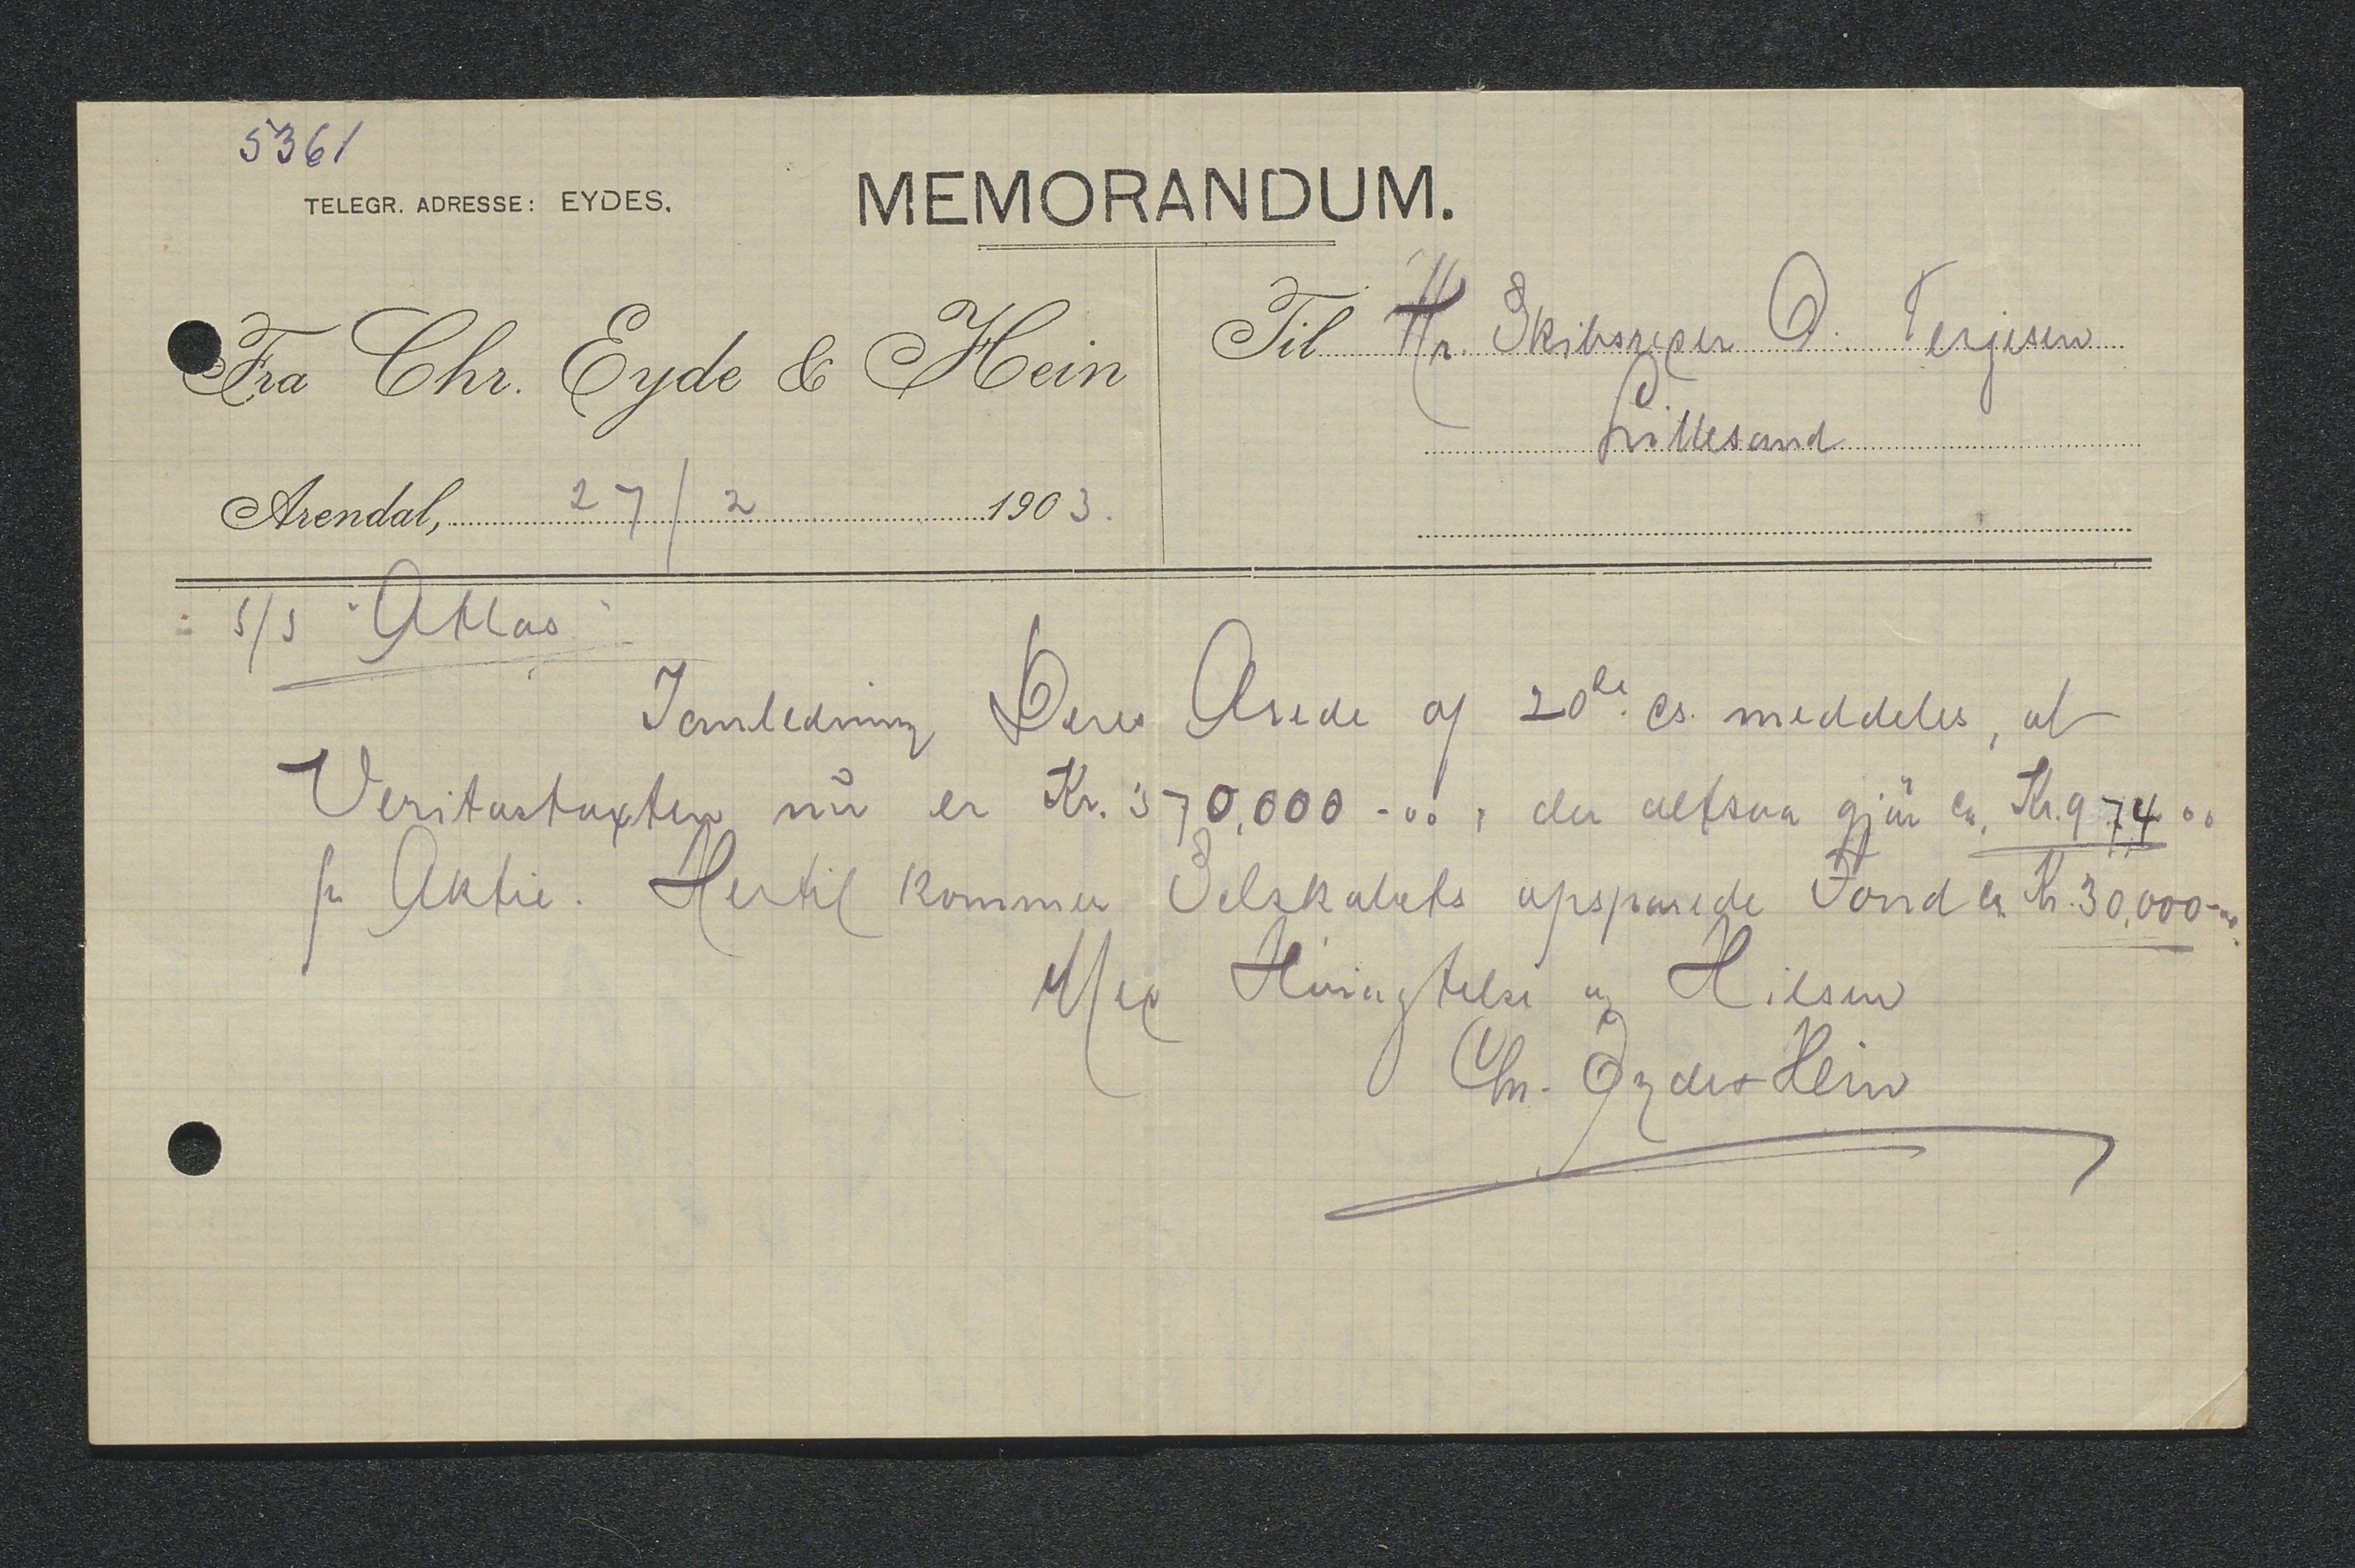 5361
TELEGR. ADRESSE: EYDES.
MEMORANDUM.
Fra Chr. Eyde & Hein
Til Hr. Skibsreder O. Terjesen
Lillesand
Arendal, 27/2 1903.
s/s "Atlas"
Ianledning Deres Ærede af 20de. cs. meddeles, at
Veritastaxten nu er Kr. 370,000-00, der altsaa gjør ca. Kr. 974 00
pr Aktie. Hertil kommer Selskabets opsparede Fond ca Kr. 30,000-00.
Med Høiagtelse og Hilsen
Chr. Eyde & Hein